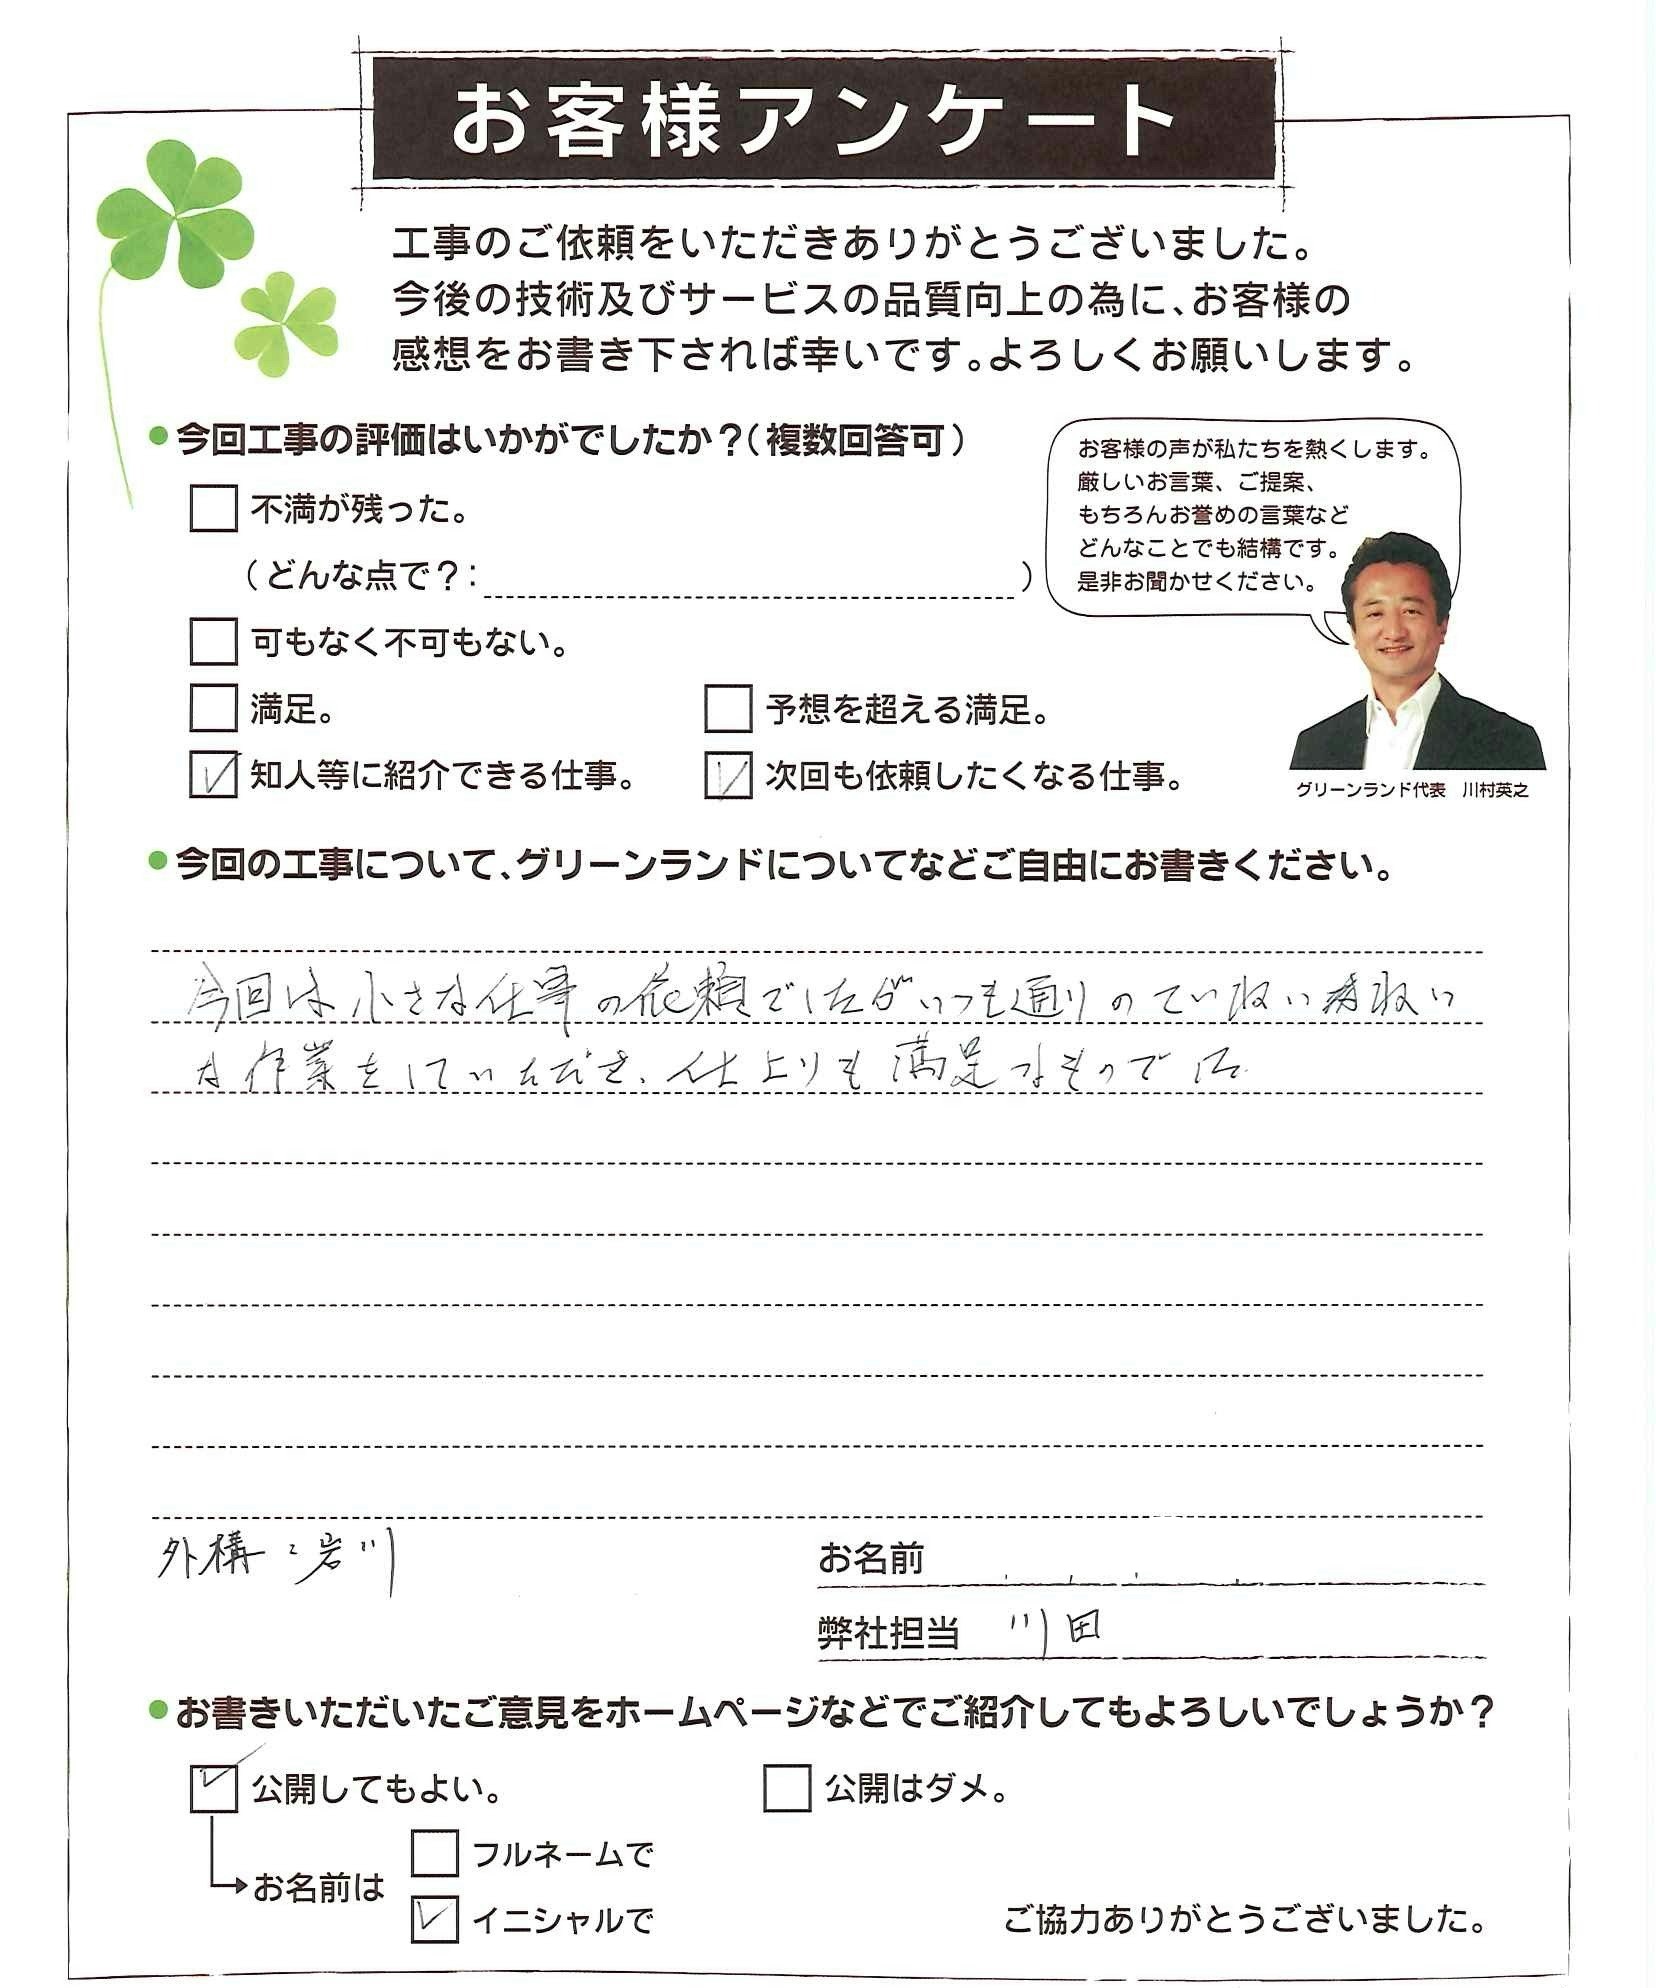 お客様アンケート
工事のご依頼をいただきありがとうございました。
今後の技術及びサービスの品質向上の為に、お客様の
感想をお書き下されば幸いです。よろしくお願いします。
●今回工事の評価はいかがでしたか？（複数回答可）
お客様の声が私たちを熱くします。
厳しいお言葉、ご提案、
もちろんお誉めの言葉など
どんなことでも結構です。
是非お聞かせください。
不満が残った。
（どんな点で？：　）
可もなく不可もない。
満足。　予想を超える満足。
知人等に紹介できる仕事。　次回も依頼したくなる仕事。
グリーンランド代表　川村英之
●今回の工事について、グリーンランドについてなどご自由にお書きください。
今回は小さな仕事の依頼でしたがいつも通りのていねい
な作業をしていただき、仕上りも満足なものでした.
外構：岩川
お名前
弊社担当　川田
●お書きいただいたご意見をホームページなどでご紹介してもよろしいでしょうか？
公開してもよい。　公開はダメ。
フルネームで
お名前は
イニシャルで
ご協力ありがとうございました。